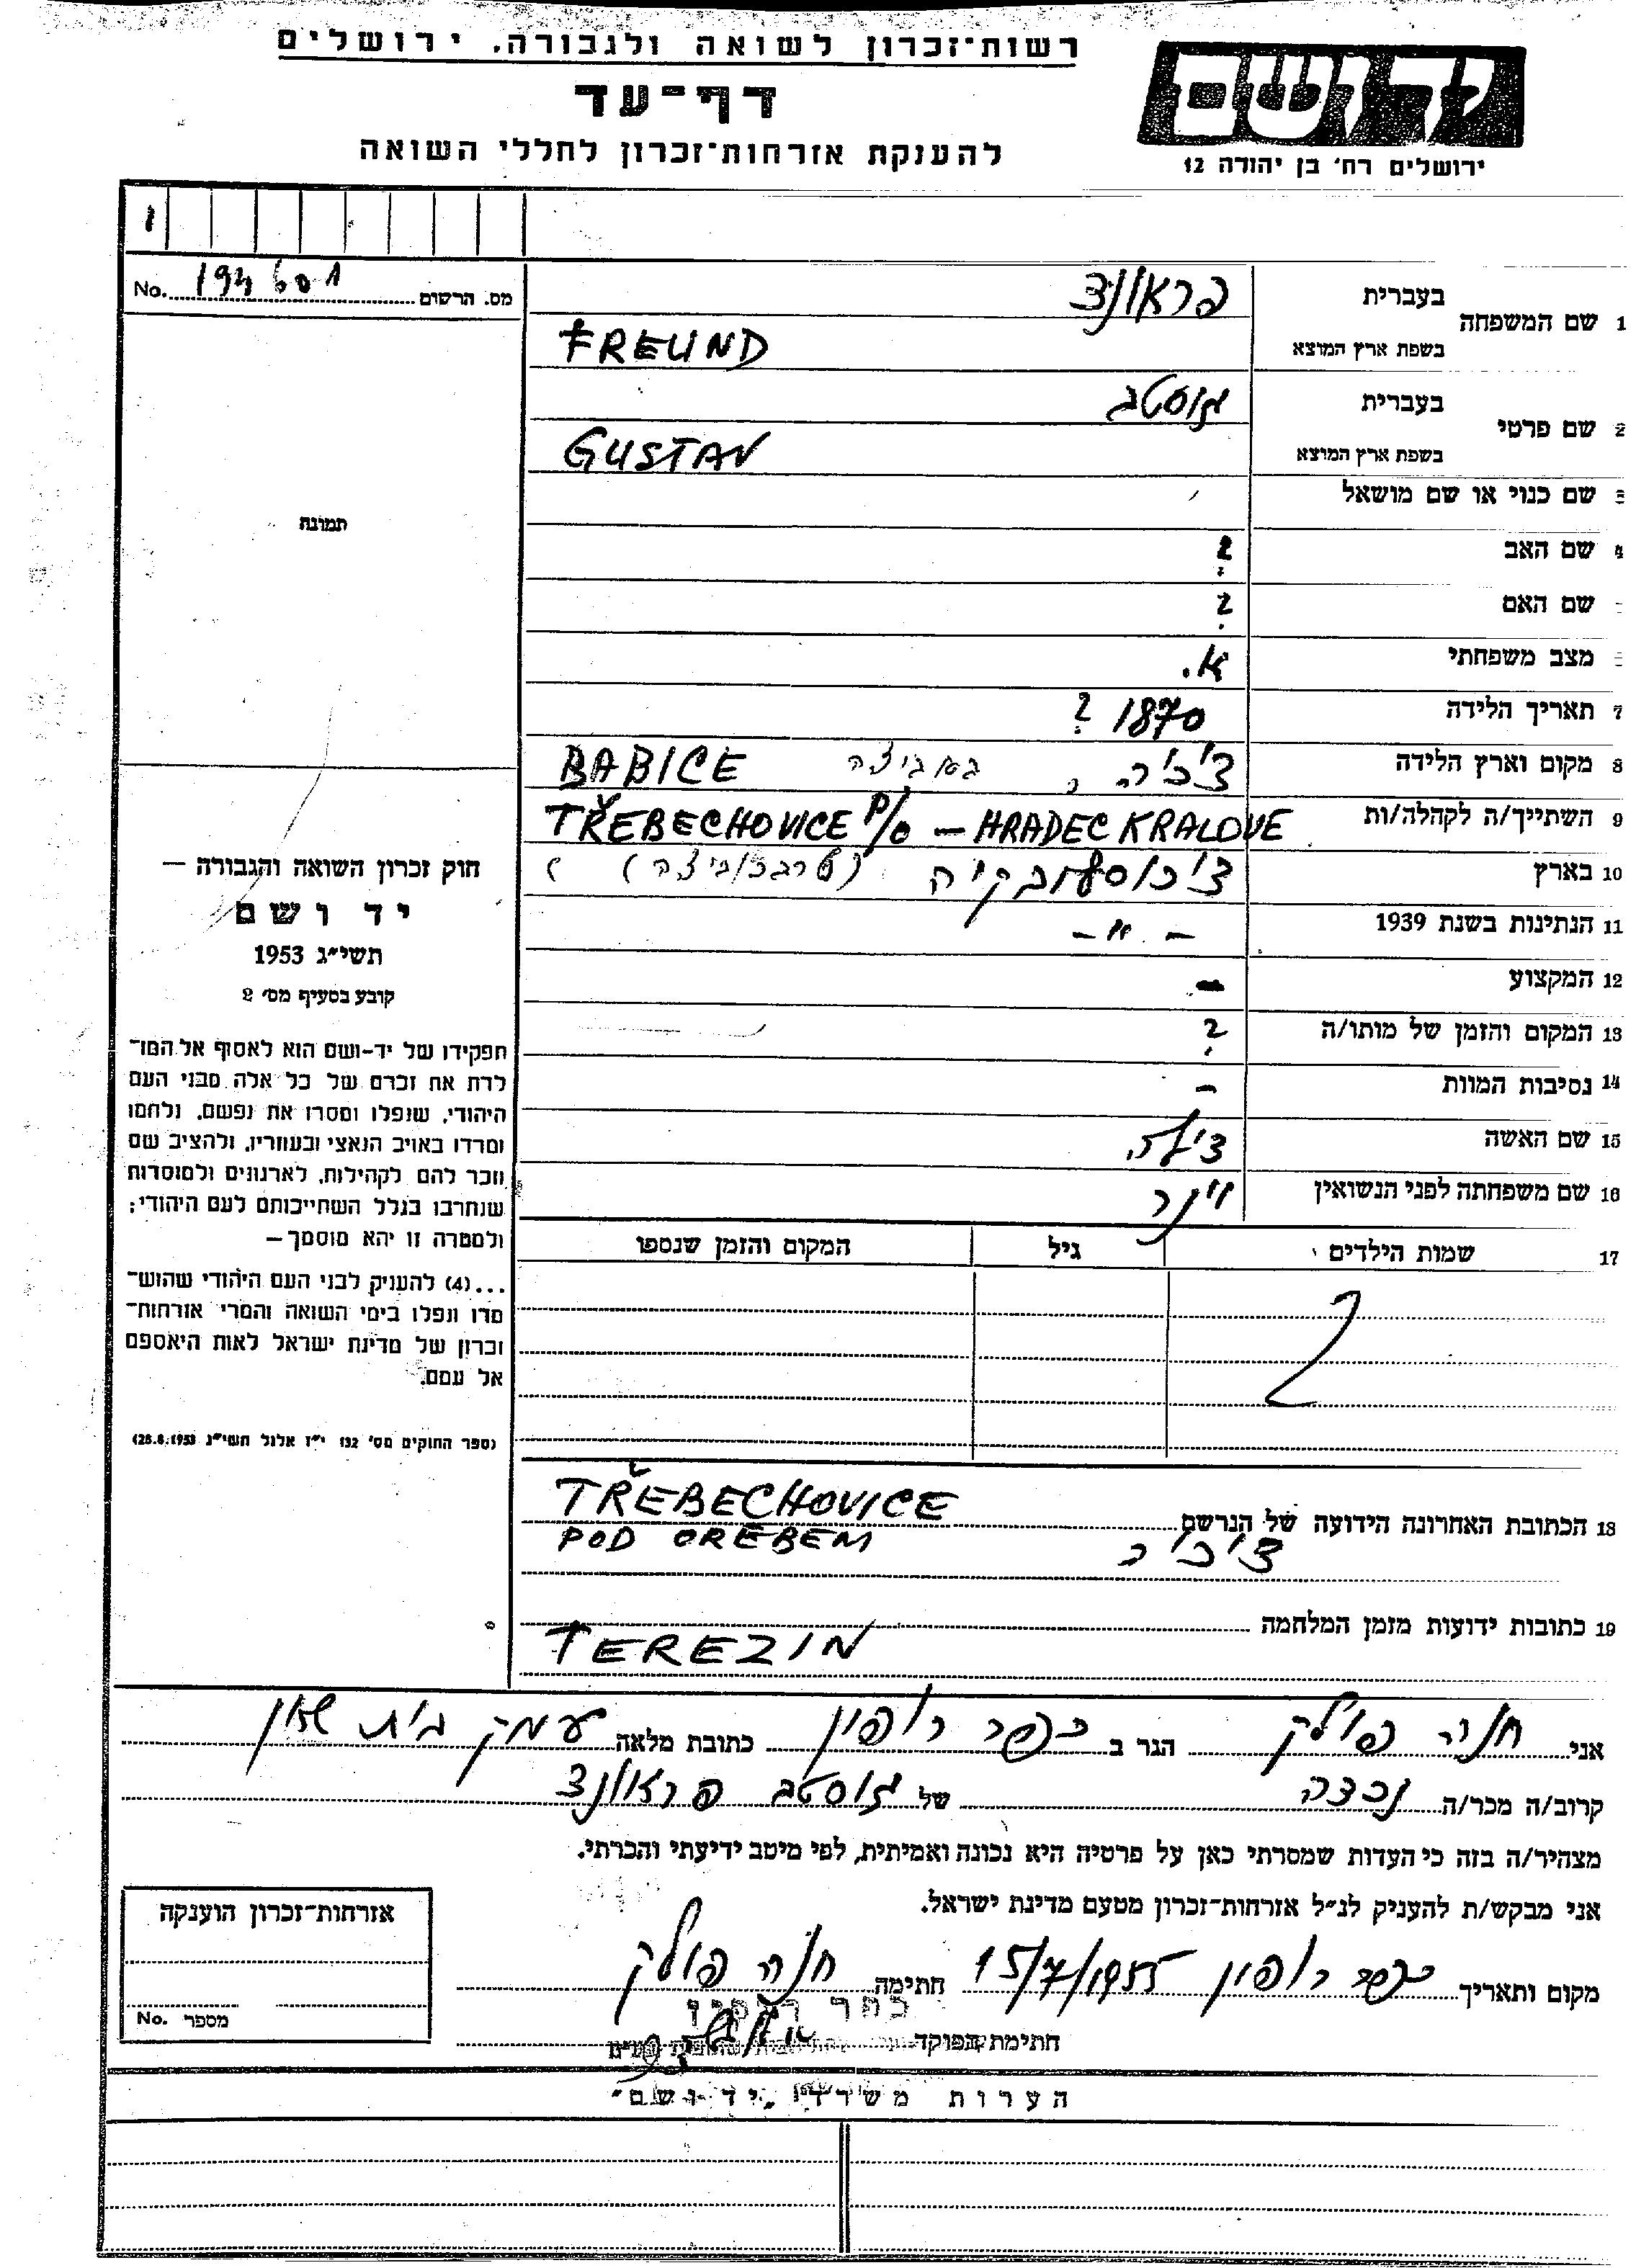 רשות־זכרון לשואה ולגבורה. ירושלים
דף־עד
להענקת אזרחות־זכרון לחללי השואה
יד ושם
ירושלים רח׳ בן יהודה 12
מס. הרשום No. 194608
1 שם המשפחה
בעברית פראונצ
בשפת ארץ המוצא FREUND
2 שם פרטי
בעברית גוסטב
בשפת ארץ המוצא GUSTAV
שם כנוי או שם מושאל
4 שם האב ?
שם האם ?
מצב משפחתי א.
7 תאריך הלידה 1870 ?
8 מקום וארץ הלידה צ׳כיה, באביצה BABICE
9 השתייך/ה לקהלה/ות TŘEBECHOVICE P/O – HRADEC KRALOVE
10 בארץ צ׳כוסלובקיה
11 הנתינות בשנת 1939 – " –
12 המקצוע –
13 המקום והזמן של מותו/ה ?
14 נסיבות המוות –
15 שם האשה צילה
16 שם משפחתה לפני הנשואין וינר
17 שמות הילדים גיל המקום והזמן שנספו
?
18 הכתובת האחרונה הידועה של הנרשם TŘEBECHOVICE
POD OREBEM צ׳כיה
19 כתובות ידועות מזמן המלחמה
TEREZIN
תמונה
חוק זכרון השואה והגבורה —
יד ושם
תשי״ג 1953
קובע בסעיף מס׳ 2
תפקידו של יד-ושם הוא לאסוף אל המו־
לדת את זכרם של כל אלה מבני העם
היהודי, שנפלו ומסרו את נפשם, נלחמו
ומרדו באויב הנאצי ובעוזריו, ולהציב שם
וזכר להם לקהילות, לארגונים ולמוסדות
שנחרבו בגלל השתייכותם לעם היהודי;
ולמטרה זו יהא מוסמך—
...(4) להעניק לבני העם היהודי שהוש־
מדו ונפלו בימי השואה והמרי אזרחות־
זכרון של מדינת ישראל לאות היאספם
אל עמם.
(ספר החוקים מס׳ 132 י״ז אלול תשי״ג 28.8.1953)
אני חנה פולק הגר ב כפר רופין כתובת מלאה עמק בית שאן
קרוב/ה מכר/ה נכדה של גוסטב פראונצ
מצהיר/ה בזה כי העדות שמסרתי כאן על פרטיה היא נכונה ואמיתית, לפי מיטב ידיעתי והכרתי.
אני מבקש/ת להעניק לנ״ל אזרחות־זכרון מטעם מדינת ישראל.
מקום ותאריך כפר רופין 15/7/1955 חתימה חנה פולק
כפר רופין
חתימת הפוקד
אזרחות־זכרון הוענקה
מספר No.
הערות משרדי „יד ושם״